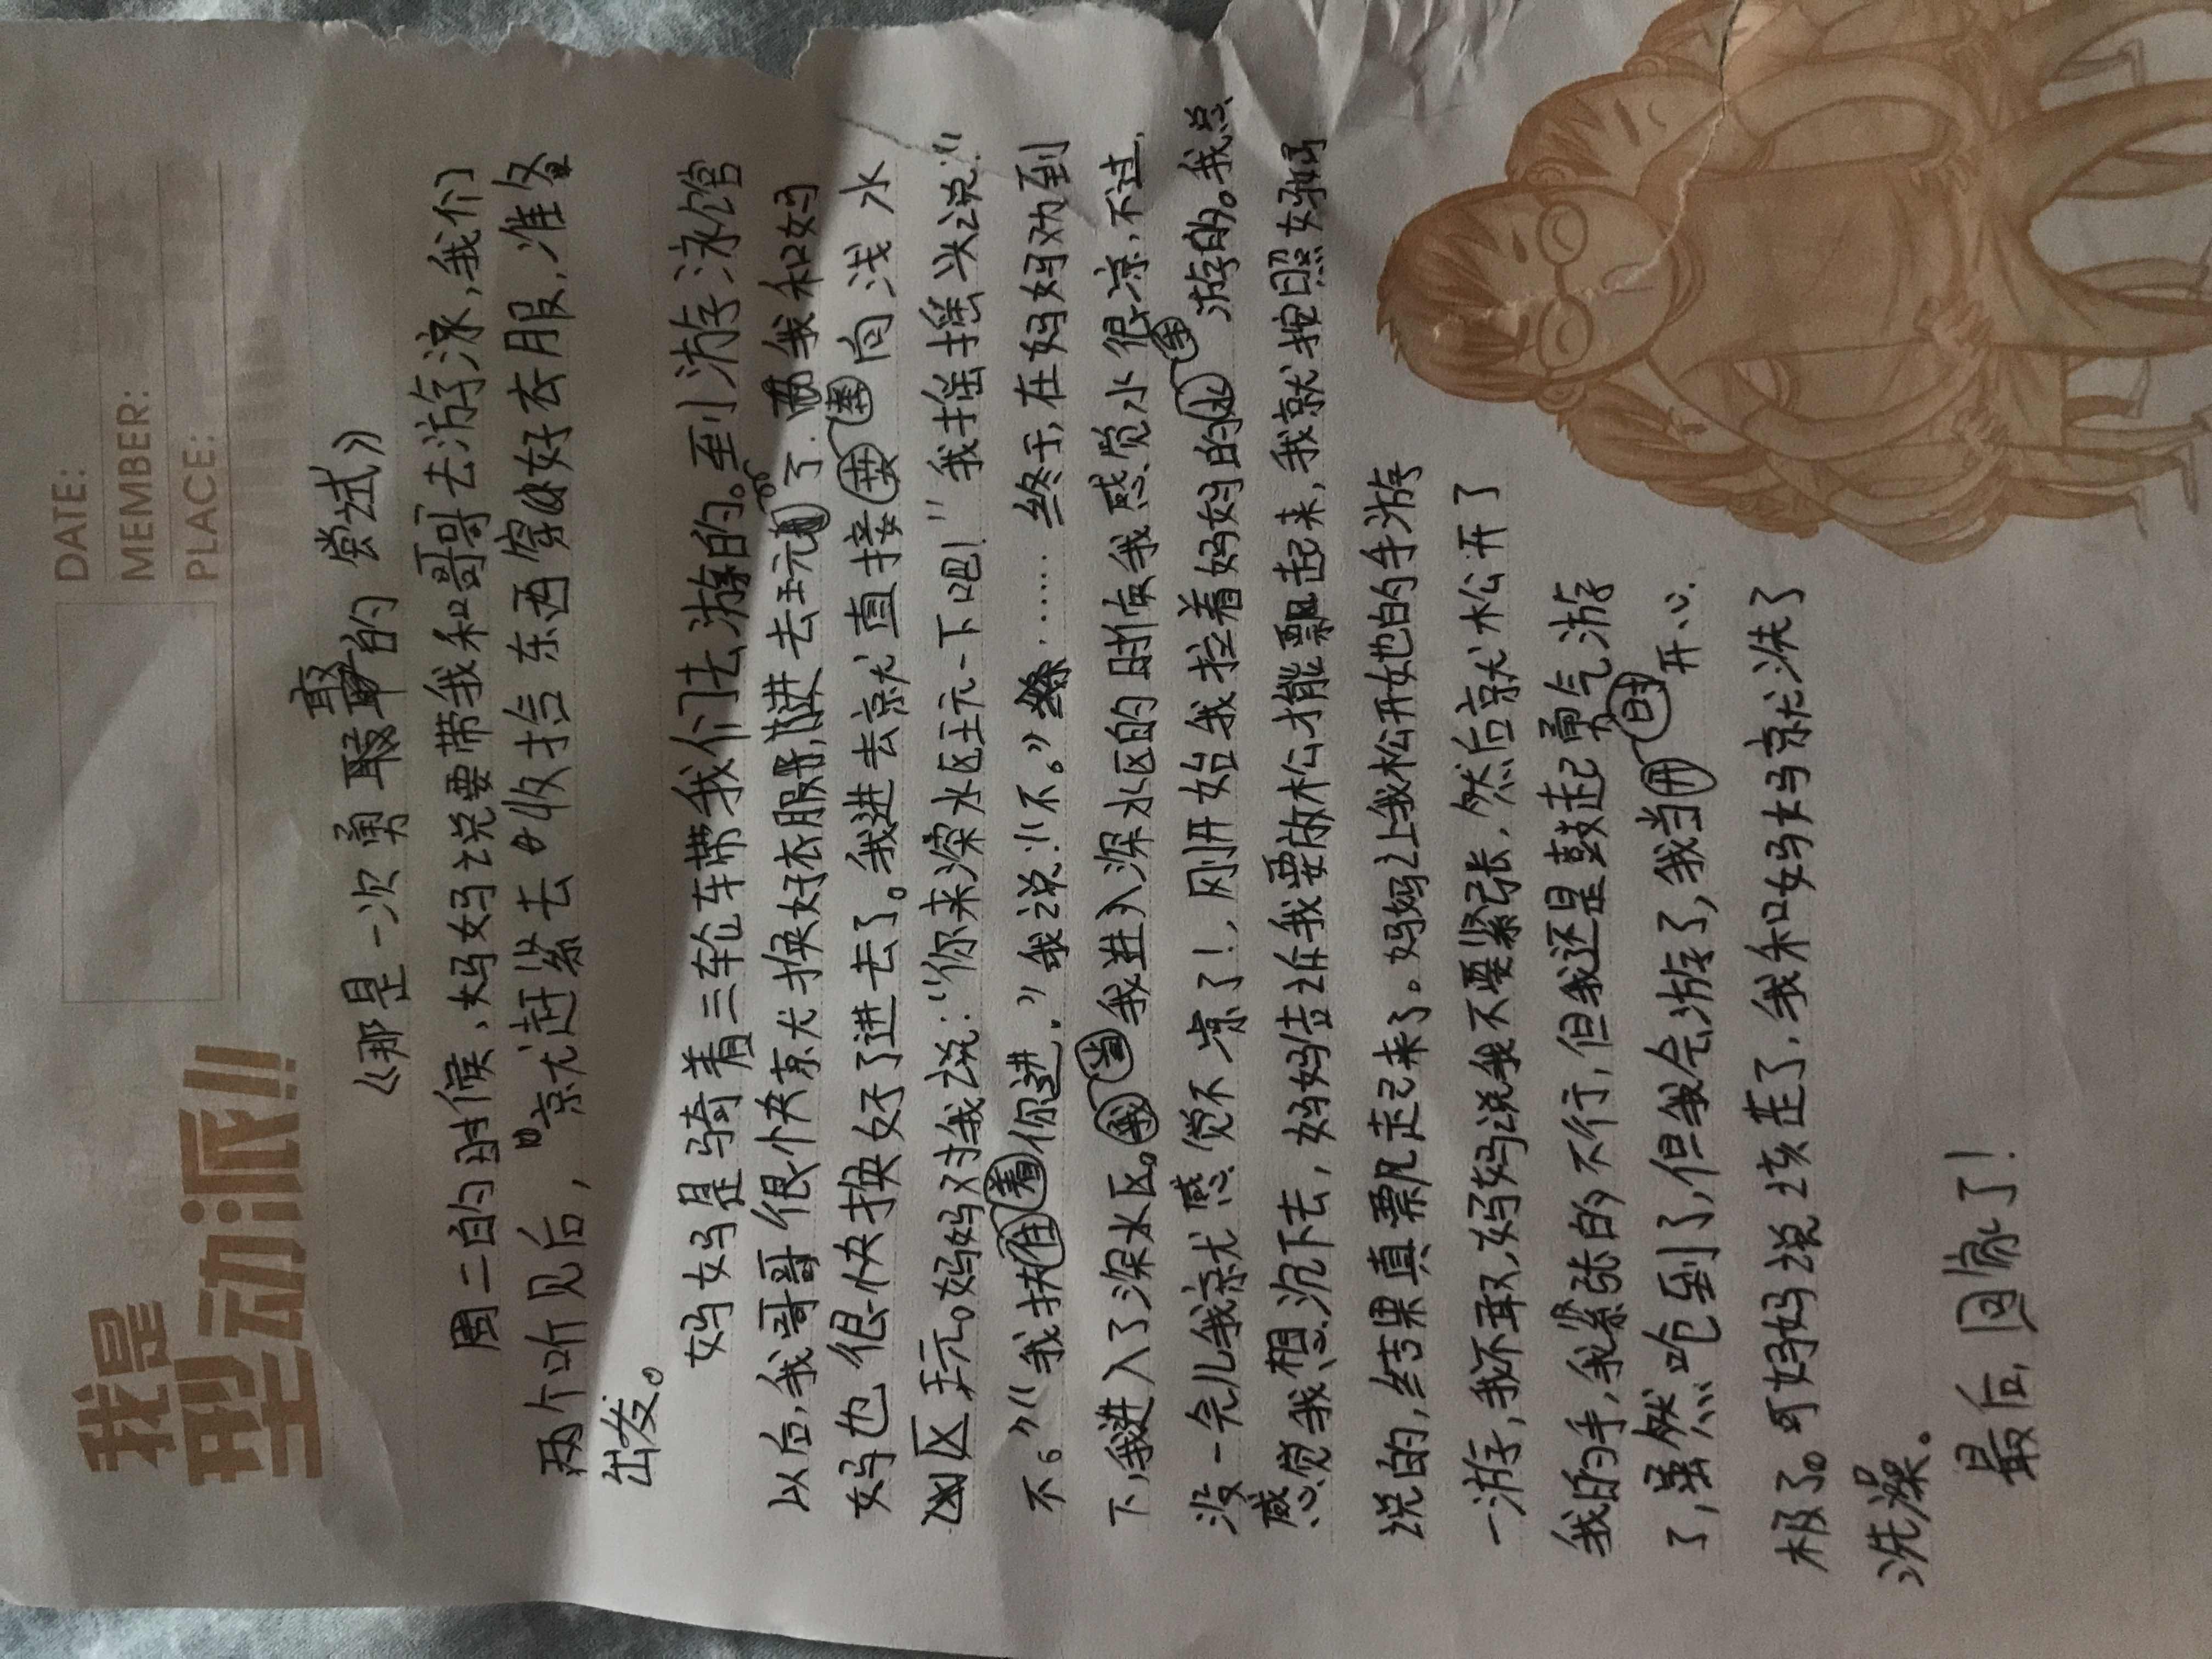 我是
型动派!!!
DATE:
MEMBER:
PLACE:
《那是一次勇敢的尝试》
周二的时候,妈妈说要带我和哥哥去游泳,我们
两个听见后,就赶紧去收拾东西穿好衣服,准备
出发。
妈妈是骑着三轮车带我们去游的。到游泳馆
以后,我哥哥很快就换好衣服,进去玩了.我和妈
妈也很快换好了进去了。我进去就直接向浅水
区玩。妈妈对我说:“你来深水区玩一下吧!”我摇摇头说:“
不。”“我扶着你进.”我说:“不。”……终于,在妈妈劝到
下,我进入了深水区。当我进入深水区的时候我感觉水很凉,不过
没一完儿我就感觉不凉了!,刚开始我拉着妈妈的手游的。我总
感觉我想沉下去,妈妈告诉我要放松才能飘起来,我就按照妈妈
说的,结果真飘起来了。妈妈让我松开她的手游
一游,我不敢,妈妈说我不要紧张,然后就松开了
我的手,我紧张的不行,但我还是鼓起勇气游
了,虽然呛到了,但我会游了,我当时开心
极了。可妈妈说该走了,我和妈妈就洗了
洗澡。
最后,回家了!